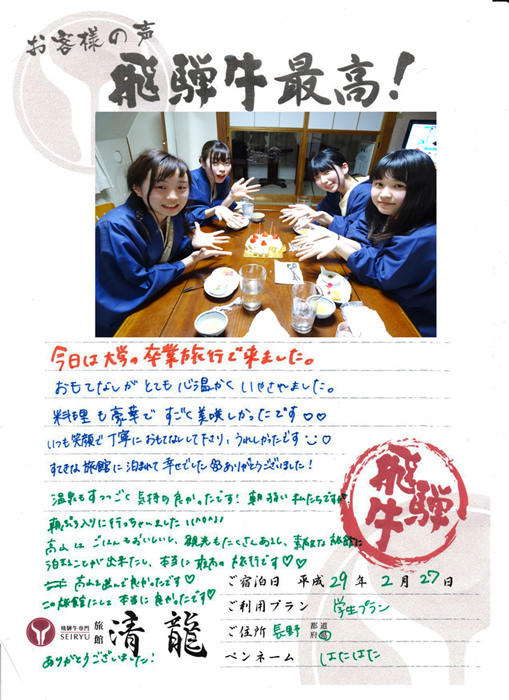 お客様の声
飛騨牛最高!
今日は大学の卒業旅行で来ました。
おもてなしがとても心温かくいやされました。
料理も豪華ですごく美味しかったです♡♡
いつも笑顔で丁寧におもてなして下さり、うれしかったです
すてきな旅館に泊まれて幸せでした ありがとうございました!
温泉もすっっごく気持ち良かったです! 朝弱い私たちですが
朝ぶろ入りに行っちゃいました!(^o^)
高山はごはんもおいしいし、観光もたくさんあるし、素敵な旅館に
泊まることが出来たし、本当に最高の旅行です♡♡
高山を選んで良かったです♡
この旅館にして本当に良かったです♡
ありがとうございました!
飛騨牛
ご宿泊日 平成 29 年 2 月 27 日
ご利用プラン 学生プラン
ご住所 長野 都道府県
ペンネーム ほたほた
飛騨牛専門 SEIRYU 旅館 清龍